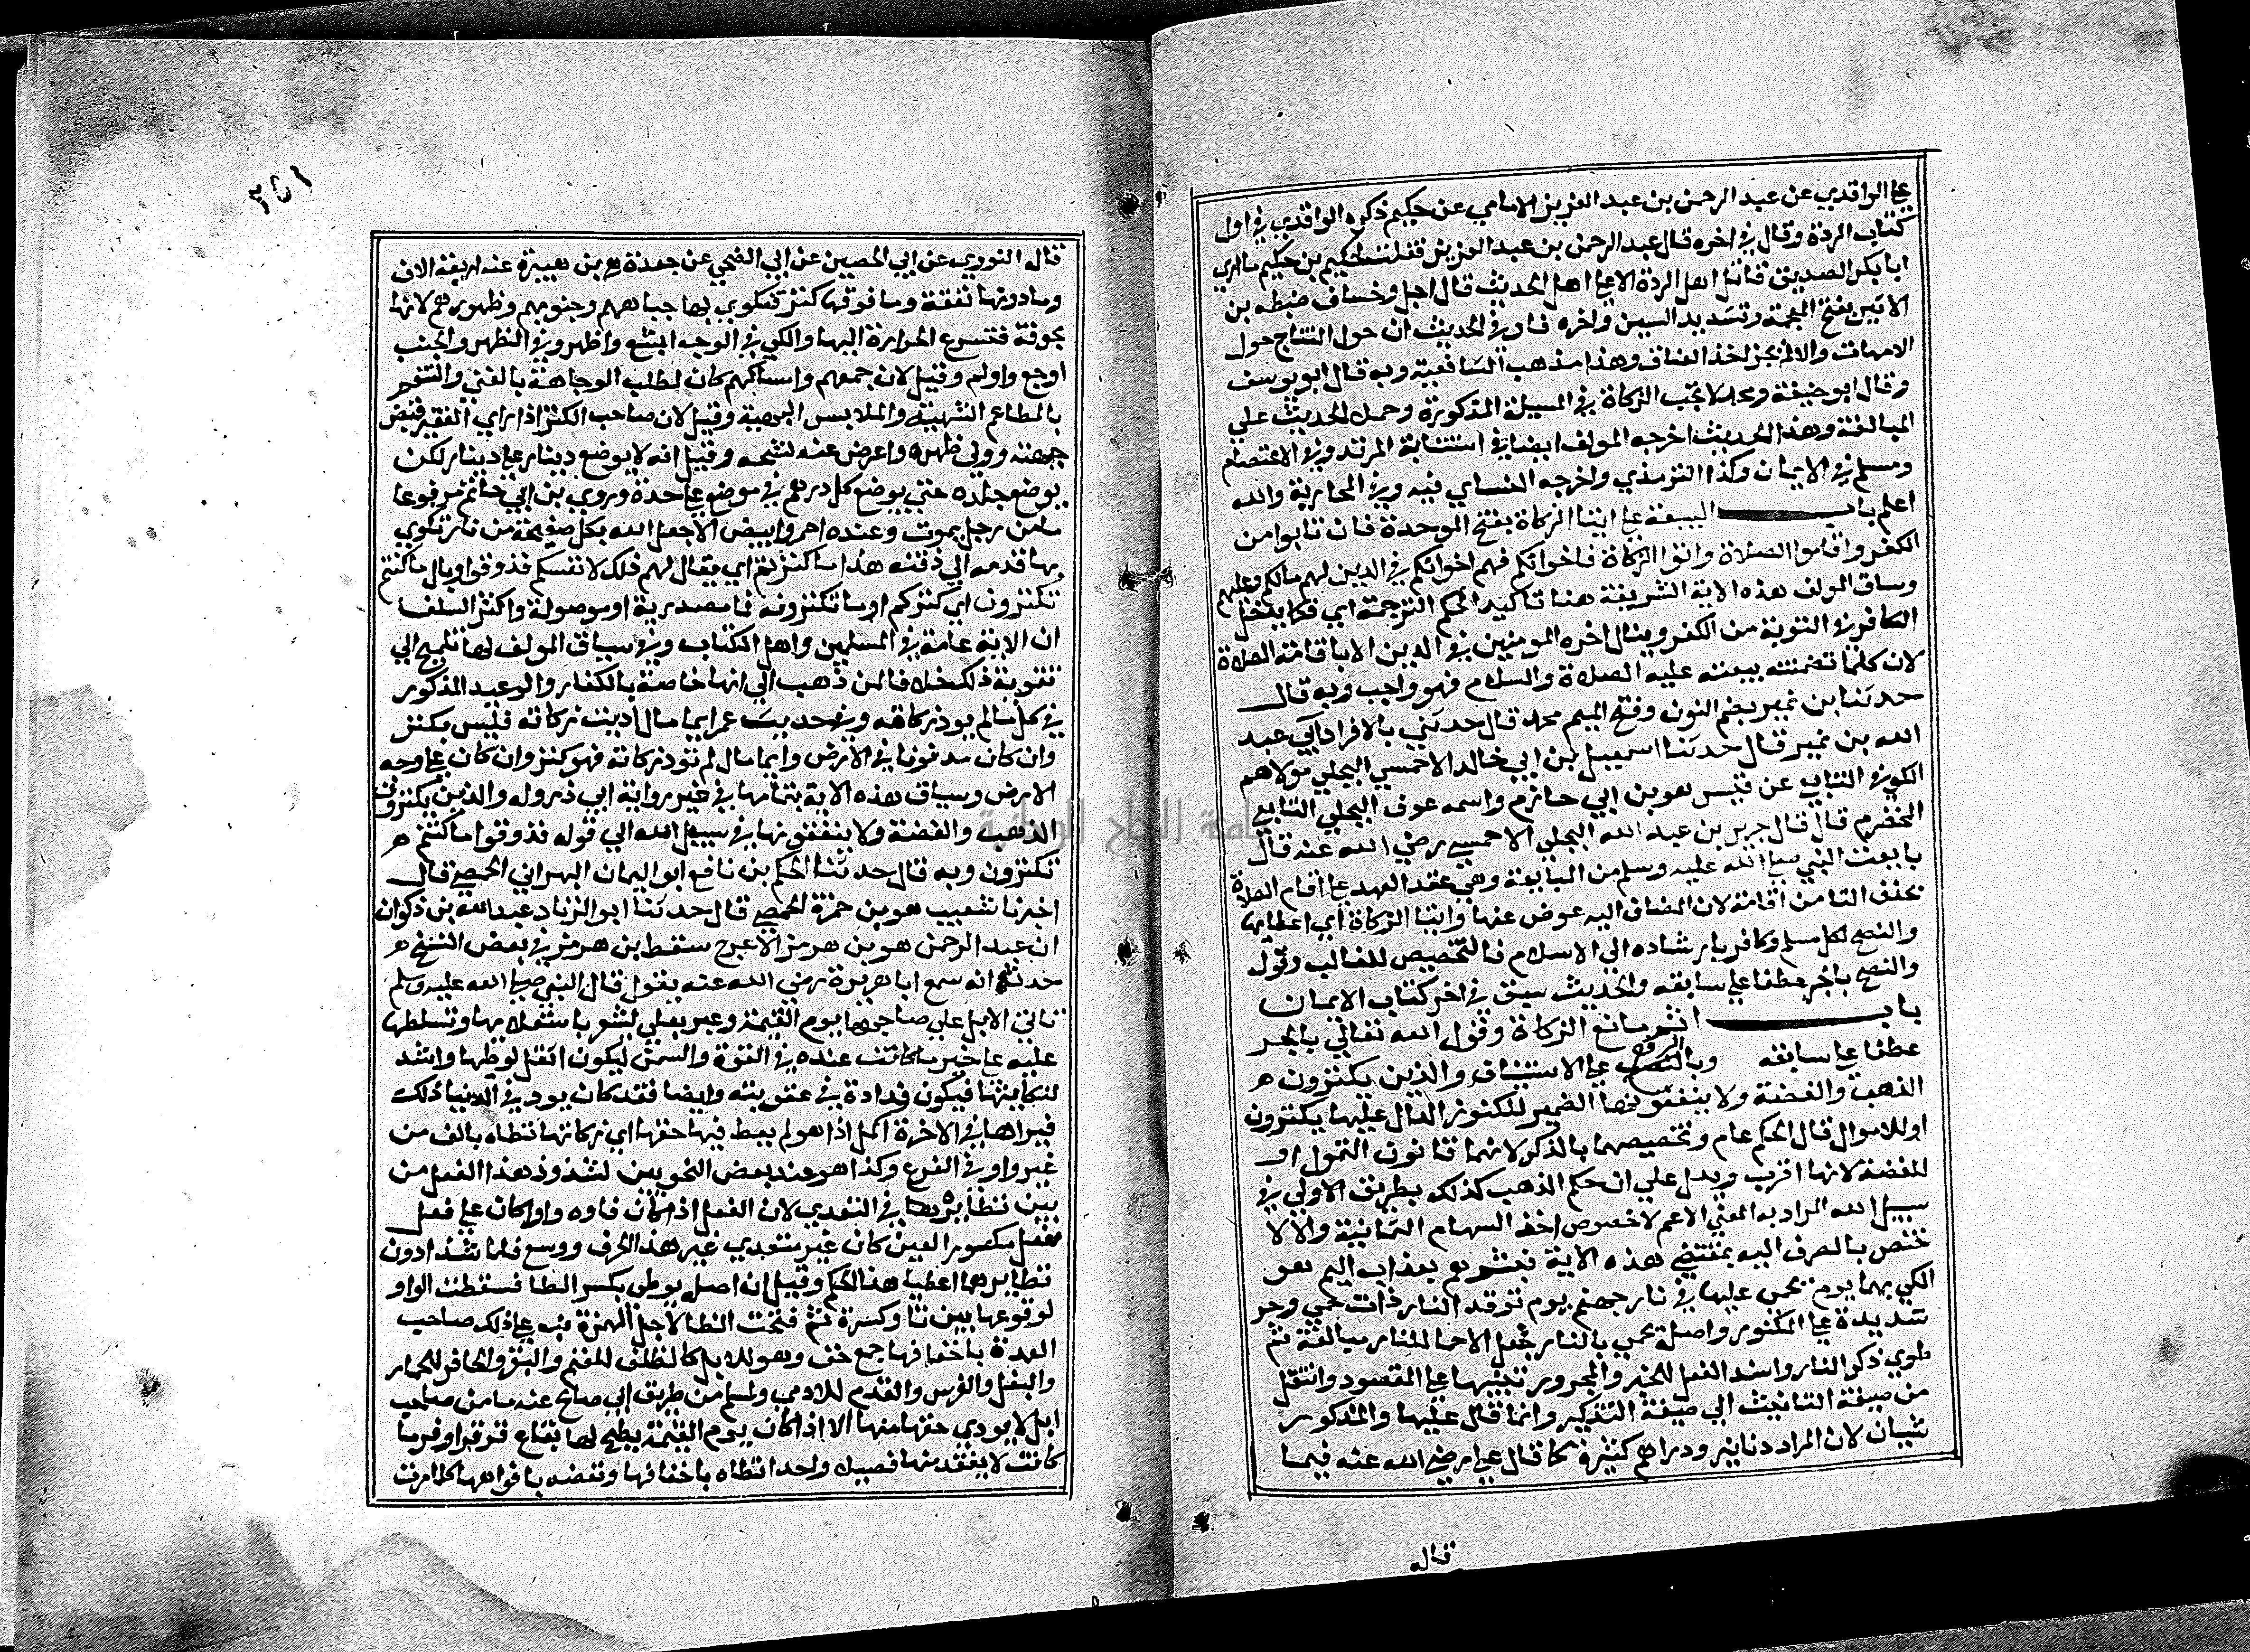 علي الواقدي عن عبد الرحمن بن عبد العزيز الامامي عن حكيم ذكره الواقدي في اول
كتاب الردة وقال في اخره قال عبد الرحمن بن عبد العزيز فقلت لحكيم بن حكيم ما اري
ابا بكر الصديق قاتل اهل الردة الا علي اهل الحديث قال اجل وخساف ضبطه بن
الاثير بفتح المعجمة وتشديد السين واخره فا وفي الحديث ان حول النتاج حول
الامهات والا لم يجز اخذ العناق وهذا مذهب الشافعية وبه قال ابو يوسف
وقال ابو حنيفة ومحمد لا تجب الزكاة في المسيلة المذكورة وحمل الحديث علي
المبالغة وهذا الحديث اخرجه المولف ايضا في استتابة المرتد وفي الاعتصام
ومسلم في الايمان وكذا الترمذي واخرجه النساي فيه وفي المحاربة والله
اعلم باب البيعة علي ايتا الزكاة بفتح الموحدة فان تابوا من
الكفر واقاموا الصلاة واتوا الزكاة فاخوانكم فهم اخوانكم في الدين لهم مالكم وعليهم
وساق المولف هذه الاية الشريفة هنا تاكيد الحكم الترجمة اي فكما لا يدخل
الكافر في التوبة من الكفر وينال اخوه المومنين في الدين الا باقامة الصلاة
لان كلما تضمنته بيعته عليه الصلاة والسلام فهو واجب وبه قال
حدثنا بن نمير بضم النون وفتح الميم محمد قال حدثني بالافراد ابي عبد
الله بن نمير قال حدثنا اسمعيل بن ابي خالد الاحمسي البجلي مولاهم
الكوفي التابعي عن قيس هو بن ابي حازم واسمه عوف البجلي التابعي
المخضرم قال قال جرير بن عبد الله البجلي الاحمسي رضي الله عنه قال
بايعت النبي صلي الله عليه وسلم من المبايعة وهي عقد العهد علي اقام الصلاة
بحذف التا من اقامة لان المضاف اليه عوض عنها وايتا الزكاة اي اعطايها
والنصح لكل مسلم وكافر بارشاده الي الاسلام فالتخصيص للغالب وقوله
والنصح بالجر عطفا علي سابقه والحديث سبق في اخر كتاب الايمان
باب اثم مانع الزكاة وقول الله تعالي بالجر
عطفا علي سابقه وبالرفع علي الاستيناف والذين يكنزون
الذهب والفضة ولا ينفقونها الضمير للكنوز الدال عليها يكنزون
او للاموال قال الحكم عام وتخصيصهما بالذكر لانهما قانون التمول او
للفضة لانها اقرب ويدل علي ان حكم الذهب كذلك بطريق الاولي في
سبيل الله المراد به المعني الاعم لا خصوص احد السهام الثمانية والا لا
ختص بالصرف اليه بمقتضي هذه الاية فبشرهم بعذاب اليم هو
الكي بهما يوم يحمي عليها في نار جهنم يوم توقد النار ذات حمي وحر
شديدة علي الكنوز واصله تحمي بالنار فجعل الاحما للنار مبالغة ثم
طوي ذكر النار واسند الفعل للجار والمجرور تنبيها علي المقصود وانتقل
من صيغة التانيث الي صيغة التذكير وانما قال عليها والمذكور
شيان لان المراد دنانير ودراهم كثيرة كما قال علي رضي الله عنه فيما
قاله
٢٥١
قاله الثوري عن ابي الحصين عن ابي الضحي عن جعدة بن هبيرة عنه اربعة الاف
ومادونها نفقة وما فوقها كنز فتكوي بها جباههم وجنوبهم وظهورهم لانها
مجوفة فتسرع الحرارة اليها والكي في الوجه ابشع واظهر وفي الظهر والجنب
اوجع واولم وقيل لان جمعهم وامساكهم كان لطلب الوجاهة بالغني والتنعم
بالمطاعم الشهية والملابس البهية وقيل لان صاحب الكنز اذا راي الفقير قبض
جبهته وولي ظهره واعرض عنه كشحه وقيل انه لا يوضع دينار علي دينار لكن
يوضع جلده حتي يوضع كل درهم في موضع علي حدة وروي بن ابي حاتم مرفوعا
ما من رجل يموت وعنده احمر وابيض الا جعل الله بكل صفيحة من نار تكوي
بها قدمه الي ذقنه هذا ما كنزتم اي يقال لهم ذلك لانفسكم فذوقوا وبال ما كنتم
تكنزون اي كنزكم او ما تكنزونه فما مصدرية او موصولة واكثر السلف
ان الاية عامة في المسلمين واهل الكتاب وفي سياق المولف لها تلميح الي
تقوية ذلك خلافا لمن ذهب الي انها خاصة بالكفار والوعيد المذكور
في كل ما لم يود زكاته وفي حديث عمر ايما مال اديت زكاته فليس بكنز
وان كان مدفونا في الارض وايما مال لم تود زكاته فهو كنز وان كان علي وجه
الارض وسياق هذه الاية بتمامها في غير رواية ابي ذر وله والذين يكنزون
الذهب والفضة ولا ينفقونها في سبيل الله الي قوله فذوقوا ما كنتم
تكنزون وبه قال حدثنا الحكم بن نافع ابو اليمان البهراني الحمصي قال
اخبرنا شعيب هو بن حمزة الحمصي قال حدثنا ابو الزناد عبد الله بن ذكوان
ان عبد الرحمن هو بن هرمز الاعرج سقط بن هرمز في بعض النسخ
حدثه انه سمع ابا هريرة رضي الله عنه يقول قال النبي صلي الله عليه وسلم
تاتي الابل علي صاحبها يوم القيمة وعبر بعلي ليشعر باستعلايها وتسلطها
عليه علي خير ما كانت عنده في القوة والسمن ليكون اثقل لوطيها واشد
لنكايتها فيكون زيادة في عقوبته وايضا فقد كان يود في الدنيا ذلك
فيراها في الاخرة اكمل اذا هو لم يعط فيها حقها اي زكاتها تطاه بالف من
غير واو في الفرع وكذا هو عند بعض النحويين لشذوذ هذا الفعل من
بين نظايرها في التعدي لان الفعل اذا كان فاوه واوا وكان علي فعل
مكسور العين كان غير متعدي غير هذا الحرف ووسع فلما شذا دون
نظايرهما اعطيا هذا الحكم وقيل ان اصل يوطي بكسر الطا فسقطت الواو
لوقوعها بين تا وكسرة ثم فتحت الطا لاجل الهمزة نبه علي ذلك صاحب
العمدة باخفافها جمع خف وهو للابل كالظلف للغنم والبقر والحافر للحمار
والبغل والفرس والقدم للادمي ولمسلم من طريق ابي صالح عنه ما من صاحب
ابل لا يودي حقها منها الا اذا كان يوم القيمة بطح لها بقاع قرقر اوفر ما
كانت لا يفقد منها فصيلا واحدا تطاه باخفافها وتعضه بافواهها كلما مرت